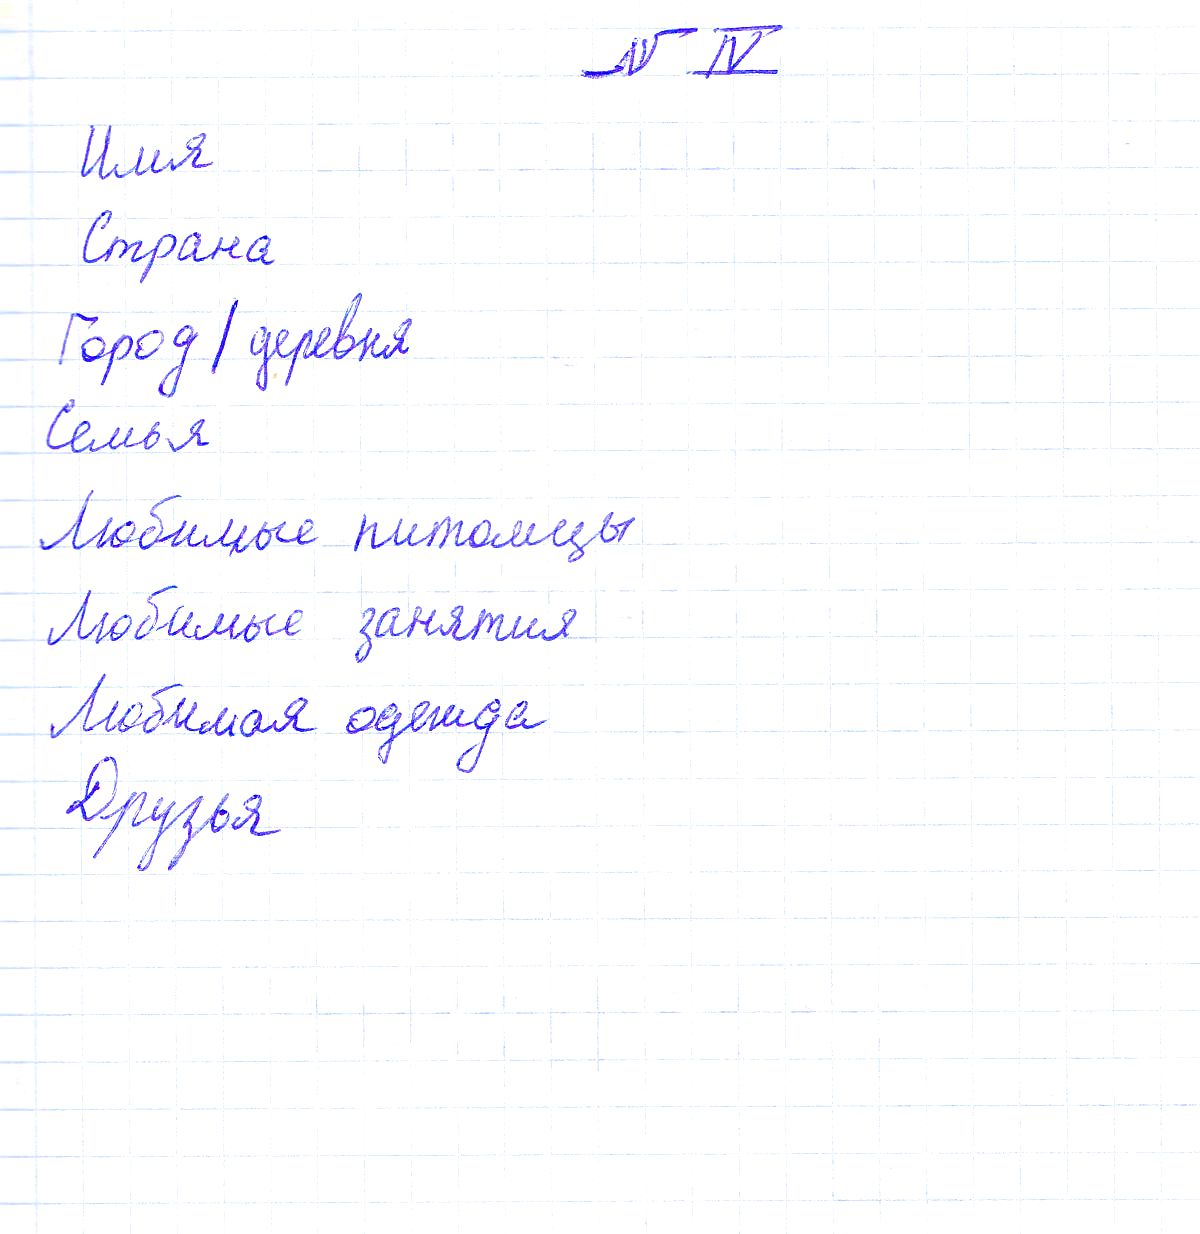 № IV
Имя
Страна
Город / деревня
Семья
Любимые питомцы
Любимые занятия
Любимая одежда
Друзья